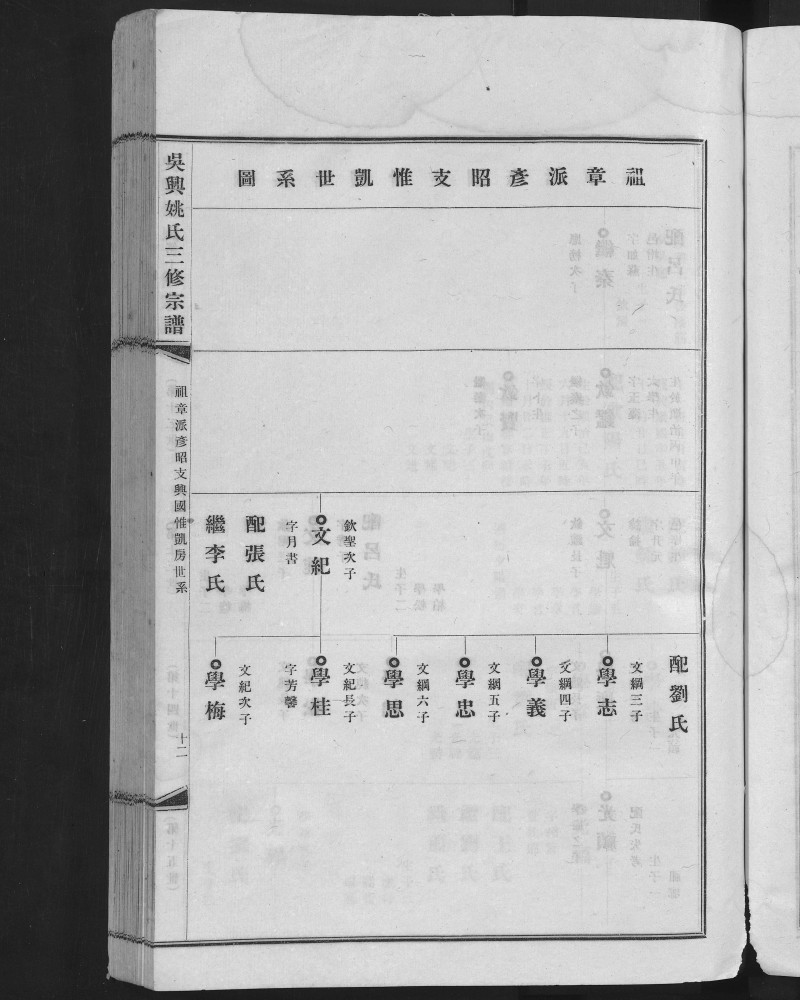 祖章派彥昭支惟凱世系圖
吳興姚氏三修宗譜
祖章派彥昭支興國惟凱房世系
十二
欽聖次子
文紀
字月書
配張氏
繼李氏
配劉氏
文綱三子
學志
文綱四子
學義
文綱五子
學忠
文綱六子
學思
文紀長子
學桂
字芳馨
文紀次子
學梅